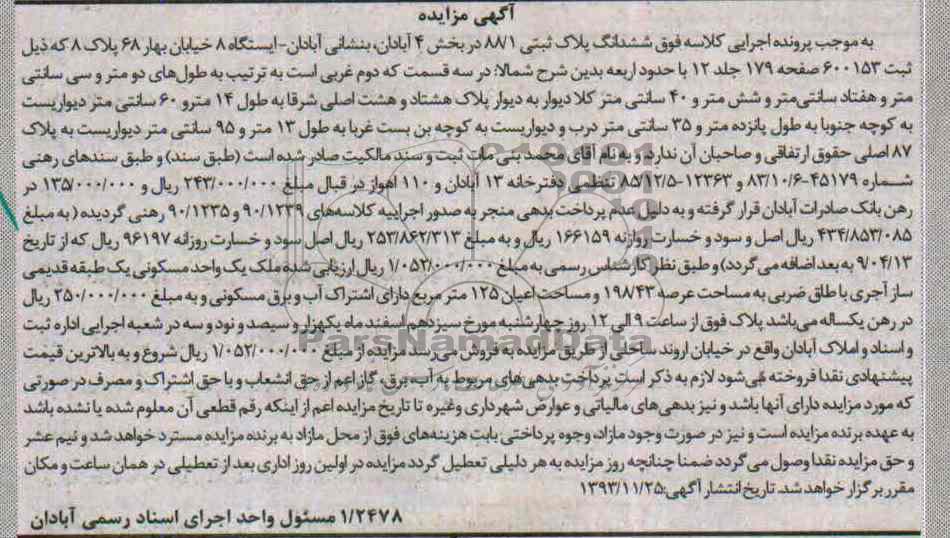 آگهی مزایده
به موجب پرونده اجرایی کلاسه فوق ششدانگ پلاک ثبتی ۸۸/۱ در بخش ۴ آبادان، بنشانی آبادان-ایستگاه ۸ خیابان بهار ۶۸ پلاک ۸ که ذیل
ثبت ۶۰۰۱۵۳ صفحه ۱۷۹ جلد ۱۲ با حدود اربعه بدین شرح شمالا: در سه قسمت که دوم غربی است به ترتیب به طول‌های دو متر و سی سانتی
متر و هفتاد سانتی‌متر و شش متر و ۴۰ سانتی متر کلا دیوار به دیوار پلاک هشتاد و هشت اصلی شرقا به طول ۱۴ مترو ۶۰ سانتی متر دیواریست
به کوچه جنوبا به طول پانزده متر و ۳۵ سانتی متر درب و دیواریست به کوچه بن بست غربا به طول ۱۳ متر و ۹۵ سانتی متر دیواریست به پلاک
۸۷ اصلی حقوق ارتفاقی و صاحبان آن ندارد و به نام آقای محمد بنی مات ثبت و سند مالکیت صادر شده است (طبق سند) و طبق سندهای رهنی
شماره ۴۵۱۷۹-۸۳/۱۰/۶ و ۱۲۳۶۳-۸۵/۱۲/۵ تنظمی دفترخانه ۱۳ آبادان و ۱۱۰ اهواز در قبال مبلغ ۲۴۳/۰۰۰/۰۰۰ ریال و ۱۳۵/۰۰۰/۰۰۰ در
رهن بانک صادرات آبادان قرار گرفته و به دلیل عدم پرداخت بدهی منجر به صدور اجراییه کلاسه‌های ۹۰/۱۲۳۹ و ۹۰/۱۲۳۵ رهنی گردیده ( به مبلغ
۴۳۴/۸۵۳/۰۸۵ ریال اصل و سود و خسارت روازنه ۱۶۶۱۵۹ ریال و به مبلغ ۲۵۳/۸۶۲/۳۱۳ ریال اصل سود و خسارت روزانه ۹۶۱۹۷ ریال که از تاریخ
۹/۰۴/۱۳ به بعد اضافه می گردد) و طبق نظر کارشناس رسمی به مبلغ ۱/۰۵۲/۰۰۰/۰۰۰ ریال ارزیابی شده ملک یک واحد مسکونی یک طبقه قدیمی
ساز آجری با طاق ضربی به مساحت عرصه ۱۹۸/۴۳ و مساحت اعیان ۱۲۵ متر مربع دارای اشتراک آب و برق مسکونی و به مبلغ ۲۵۰/۰۰۰/۰۰۰ ریال
در رهن یکساله می‌باشد پلاک فوق از ساعت ۹ الی ۱۲ روز چهارشنبه مورخ سیزدهم اسفند ماه یکهزار و سیصد و نود و سه در شعبه اجرایی اداره ثبت
و اسناد و املاک آبادان واقع در خیابان اروند ساحلی از طریق مزایده به فروش می‌رسد مزایده از مبلغ ۱/۰۵۲/۰۰۰/۰۰۰ ریال شروع و به بالاترین قیمت
پیشنهادی نقدا فروخته می‌شود لازم به ذکر است پرداخت بدهی‌های مربوط به آب، برق، گاز اعم از حق انشعاب و یا حق اشتراک و مصرف در صورتی
که مورد مزایده دارای آنها باشد و نیز بدهی‌های مالیاتی و عوارض شهرداری وغیره تا تاریخ مزایده اعم از اینکه رقم قطعی آن معلوم شده یا نشده باشد
به عهده برنده مزایده است و نیز در صورت وجود مازاد، وجوه پرداختی بابت هزینه‌های فوق از محل مازاد به برنده مزایده مسترد خواهد شد و نیم عشر
و حق مزایده نقدا وصول می گردد ضمنا چنانچه روز مزایده به هر دلیلی تعطیل گردد مزایده در اولین روز اداری بعد از تعطیلی در همان ساعت و مکان
مقرر برگزار خواهد شد. تاریخ انتشار آگهی: ۱۳۹۳/۱۱/۲۵
۱/۲۴۷۸ مسئول واحد اجرای اسناد رسمی آبادان
ParsNamadData